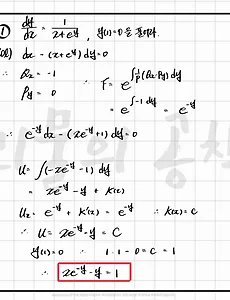 ① dy/dx = 1/(x+e^y), y(1)=0을 풀어라.
sol) dx - (x+e^y) dy = 0
∴ Qx = -1
Py = 0
∴ F = e^∫(1/P)(Qx-Py)dy
= e^∫-1 dy = e^-y
∴ e^-y dx - (xe^-y+1) dy = 0
u = ∫(-xe^-y - 1) dy
= xe^-y - y + k(x)
ux = e^-y + k'(x) = e^-y ∴ k(x) = c
∴ u = xe^-y - y = C
y(1) = 0 ∴ 1·1 - 0 = C = 1
∴ xe^-y - y = 1